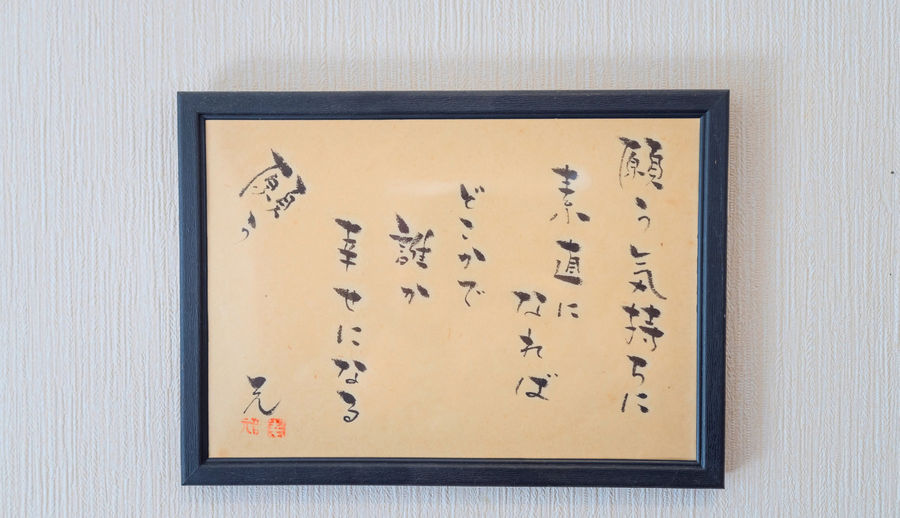 願う気持ちに
素直に
なれば
どこかで
誰か
幸せになる
願う
元